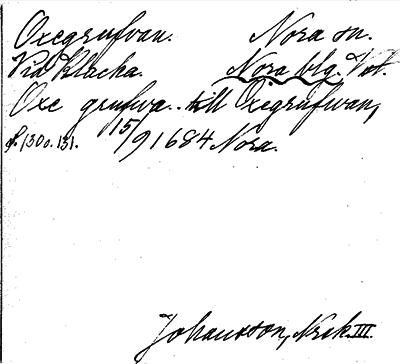 Oxegrufvan. Nora sn.
Vid Klacka. Nora blg. Vst.
Oxe grufwa. till Oxegrufwan,
s. 130 o. 131. 15/9 1684 Nora.
Johansson, Nsk. III.